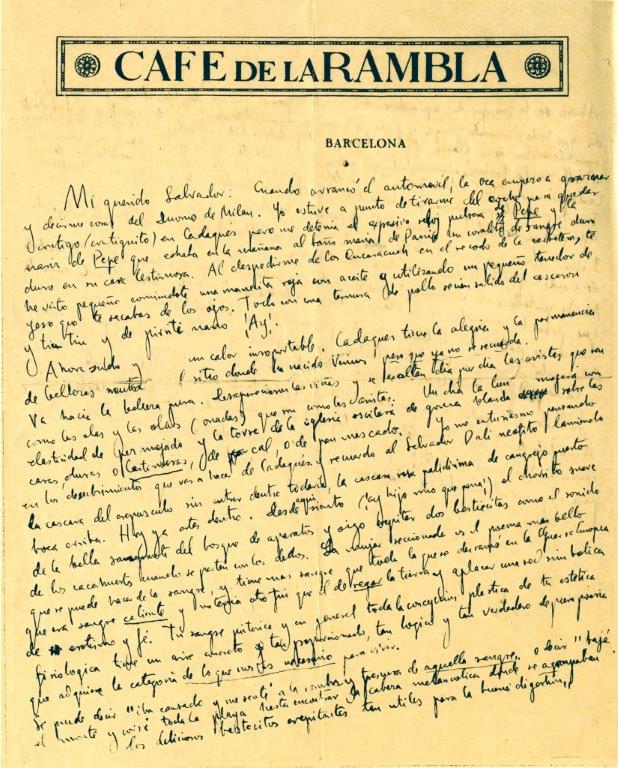 CAFE DE LA RAMBLA
BARCELONA
Mi querido Salvador: Cuando arrancó el automovil, la oca empezo a graznar
y decirme cosas del Duomo de Milan. Yo estuve a punto de tirarme del coche para quedar
contigo (contiguito) en Cadaques pero me detenia el expresivo reloj pulsera de Pepe y la
nariz de Pepe que echaba en la mañana al baño maria de Paris un coralito de sangre duro
duro en su cara lastimosa. Al despedirme de los en el recodo de la carretera, te
he visto pequeño comiendote una manita roja con aceite y utilizando un pequeño tenedor de
yeso que te sacabas de los ojos. Todo con una ternura de pollo recien salido del cascaron
y tin tin y de mano ¡Ay!.
Ahora sudo y un calor insoportable. Cadaques tiene la alegria y la permanencia
de belleza neutra del sitio donde ha nacido Venus, pero que ya no se recuerda.
Va hacia la belleza pura. Desaparecieron las viñas y se exaltan dia por dia las aristas que son
como las olas y las olas (onadas) que son como las aristas. Un dia la luna mojada con
elasticidad de pez mojado y la torre de la iglesia oscilará de goma blanda sobre las
casas duras o lastimosas, de cal, o de pan mascado. Yo me entusiasmo pensando
en los descubrimientos que vas a hacer de Cadaques y recuerdo al Salvador Dali neofito lamiendo
la cascara del crepusculo sin entrar dentro todavia, la cascara rosa palidisima de cangrejo puesto
boca arriba. Hoy ya estas dentro. Desde aqui siento (¡ay hijo mio que pena!) el chorrito suave
de la bella sangrante del bosque de aparatos y oigo crepitar dos bestiecitas como el sonido
de los cacahuetes cuando se parten con los dedos. La mujer seccionada es el poema mas bello
que se puede hacer de la sangre, y tiene mas sangre que toda la que se derramó en la Guerra Europea
que era sangre caliente y no tenia otro fin que el de regar la tierra y aplacar una sed simbolica
de erotismo y fé. Tu sangre pictorica y en general toda la concepcion plastica de tu estetica
fisiologica tiene un aire concreto y tan proporcionado, tan logico y tan verdadero de pura poesia
que adquiere la categoria de lo que nos es necesario para vivir.
Se puede decir "iba cansado y me senté a la sombra y frescura de aquella sangre", o decir "bajé
el monte y corrí toda la playa hasta encontrar la cabeza melancolica donde se agrupaban
los deliciosos bestiecitos crepitantes tan utiles para la buena digestion",